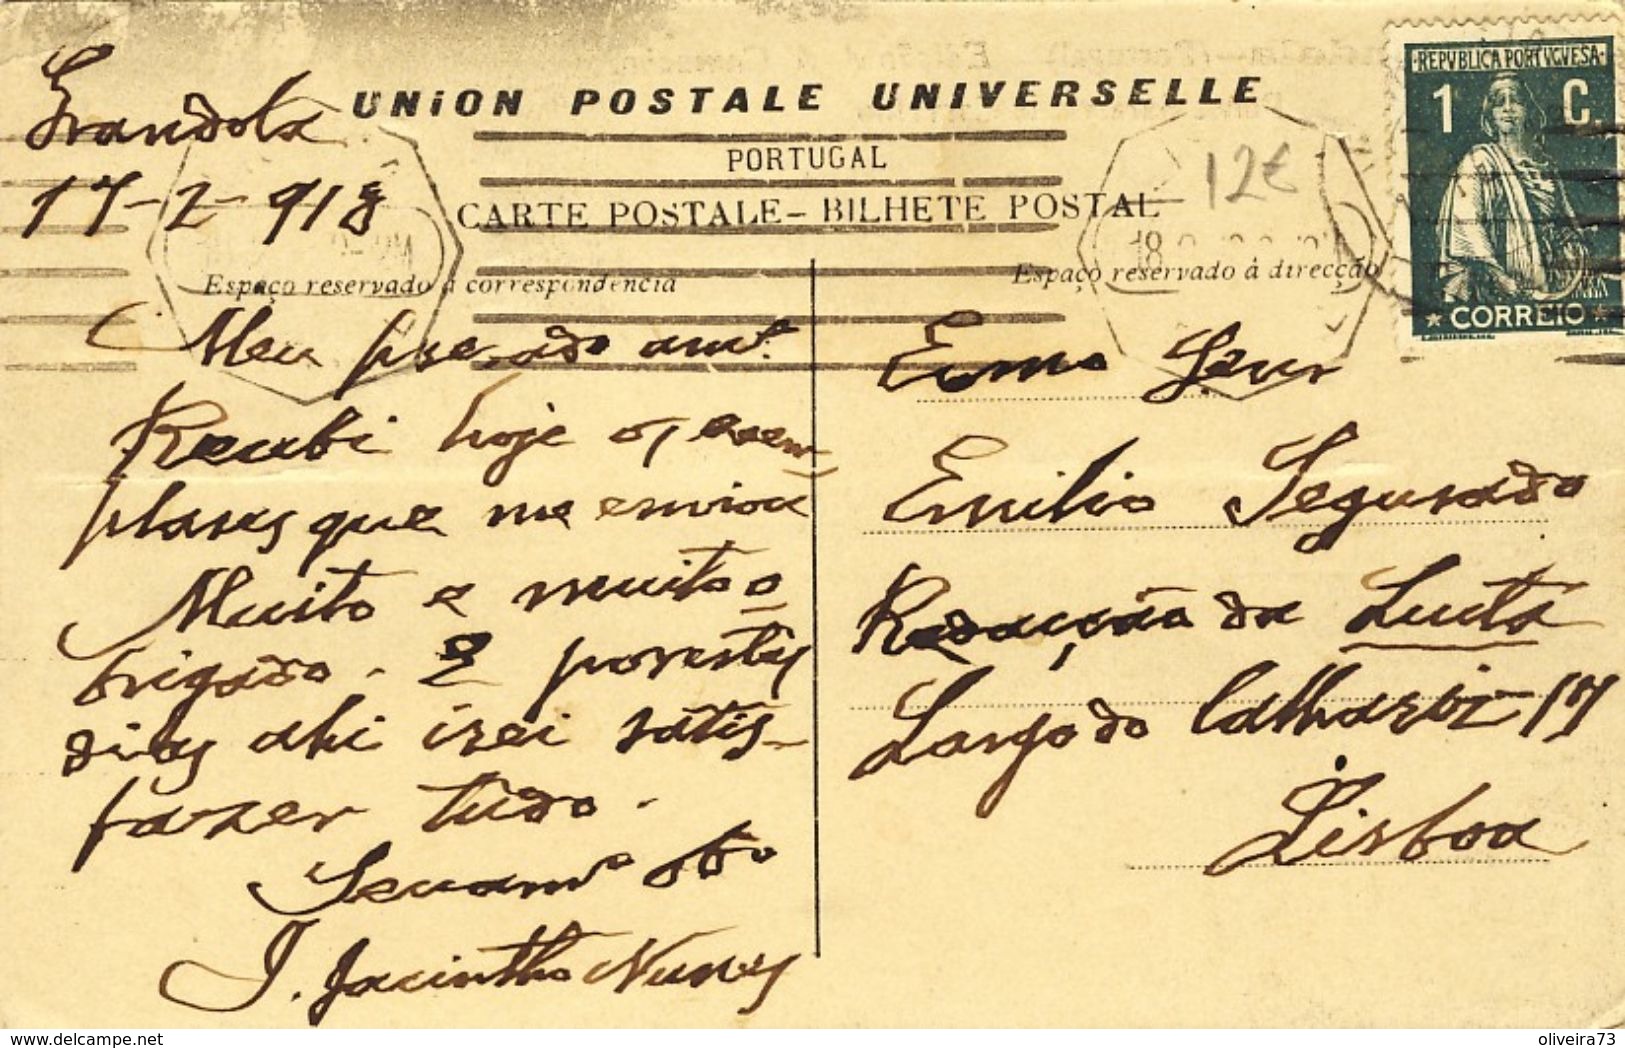 Grandola
17-2-918
UNiON POSTALE UNIVERSELLE
PORTUGAL
CARTE POSTALE - BILHETE POSTAL
12€
Espaço reservado á correspondencia
Espaço reservado à direcção
REPVBLICA PORTVGVESA
1 C.
CORREIO
Meu prezado amº.
Recebi hoje os exem-
plares que me enviou
Muito e muito o
brigado. E por estes
dias ahi irei satis-
fazer tudo.
Seu amº obº
J. Jacintho Nunes
Exmo Senr
Emilio Segurado
Redacção da Lucta
Largo do Calhariz 17
Lisboa
delcampe.net
oliveira73